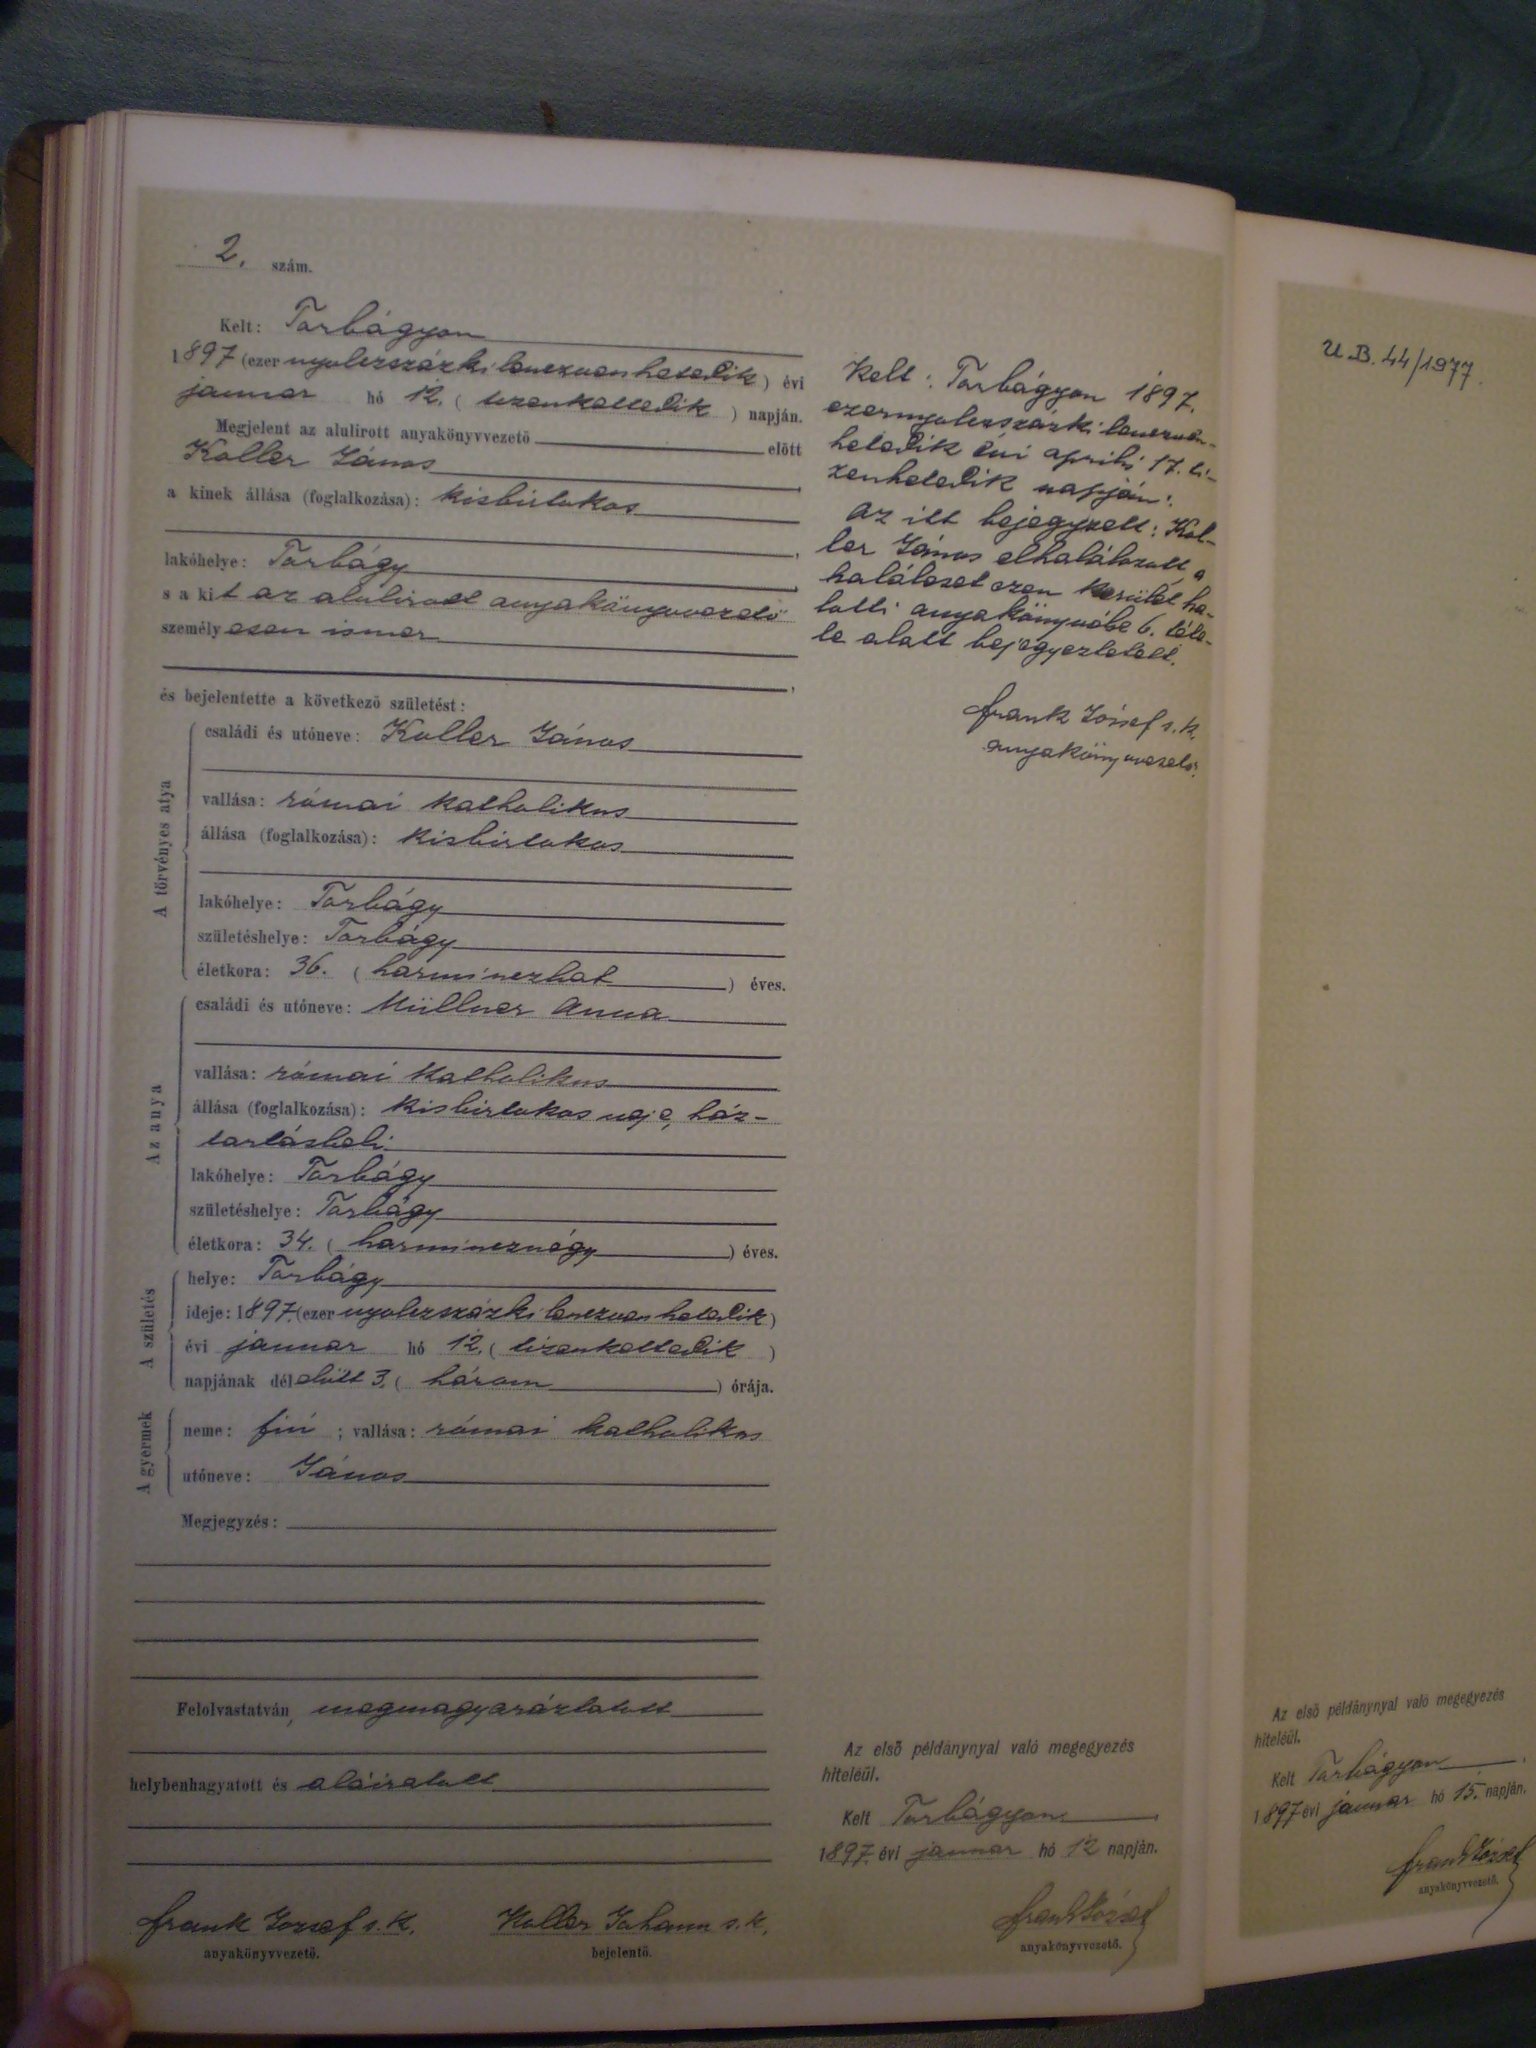 2. szám.
Kelt: Torbágyon
1897 (ezer nyolczszázkilenczvenhetedik) évi
januar hó 12. (tizenkettedik) napján.
Megjelent az alulirott anyakönyvvezető előtt
Koller János,
a kinek állása (foglalkozása): kisbirtokos
,
lakóhelye: Torbágy,
s a kit az alulirott anyakönyvvezető
személyesen ismer
,
és bejelentette a következő születést:
A törvényes atya
családi és utóneve: Koller János
vallása: római katholikus
állása (foglalkozása): kisbirtokos
lakóhelye: Torbágy
születéshelye: Torbágy
életkora: 36. (harminczhat) éves.
Az anya
családi és utóneve: Müllner Anna
vallása: római katholikus
állása (foglalkozása): kisbirtokos neje, ház-
tartásbeli
lakóhelye: Torbágy
születéshelye: Torbágy
életkora: 34. (harmincznégy) éves.
A születés
helye: Torbágy
ideje: 1897. (ezer nyolczszázkilenczvenhetedik)
évi januar hó 12. (tizenkettedik)
napjának délelőtt 3. (három) órája.
A gyermek
neme: fiú ; vallása: római katholikus
utóneve: János
Megjegyzés:
Felolvastatván, megmagyaráztatott
helybenhagyatott és aláiratott
Frank József s. k.
anyakönyvvezető.
Koller Johann s. k.
bejelentő.
Kelt: Torbágyon 1897.
ezernyolczszázkilenczven-
hetedik évi április 17. ti-
zenhetedik napján:
Az itt bejegyzett: Kol-
ler János elhalálozott, a
haláleset ezen kerület ha-
lotti anyakönyvébe 6. téte-
le alatt bejegyeztetett.
Frank József s. k.
anyakönyvvezető.
Az első példánynyal való megegyezés
hiteléül.
Kelt Torbágyon
1897. évi januar hó 12 napján.
Frank József
anyakönyvvezető.
U.B. 44/1977.
Az első példánynyal való megegyezés
hiteléül.
Kelt Torbágyon
1897 évi januar hó 15. napján.
Frank József
anyakönyvvezető.